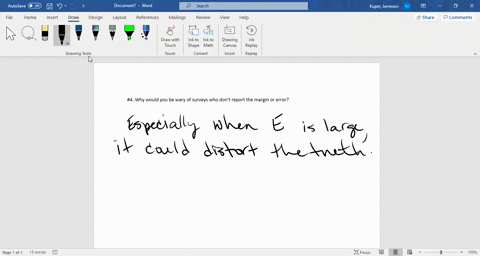 AutoSave Off Document1 - Word Search Kuper, Jameson
File Home Insert Draw Design Layout References Mailings Review View Help Share Comments
Draw with Touch Ink to Shape Ink to Math Drawing Canvas Ink Replay
Drawing Tools Touch Convert Insert Replay
#4. Why would you be wary of surveys who don't report the margin or error?
Especially when E is large,
it could distort the truth.
Page 1 of 1 15 words Focus 100%